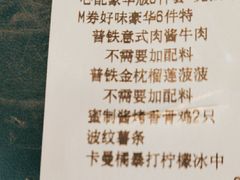 M券好味豪华6件特
普铁意式肉酱牛肉
不需要加配料
普铁金枕榴莲菠菠
不需要加配料
蜜制酱烤骨骨鸡2只
波纹薯条
卡曼橘暴打柠檬冰中